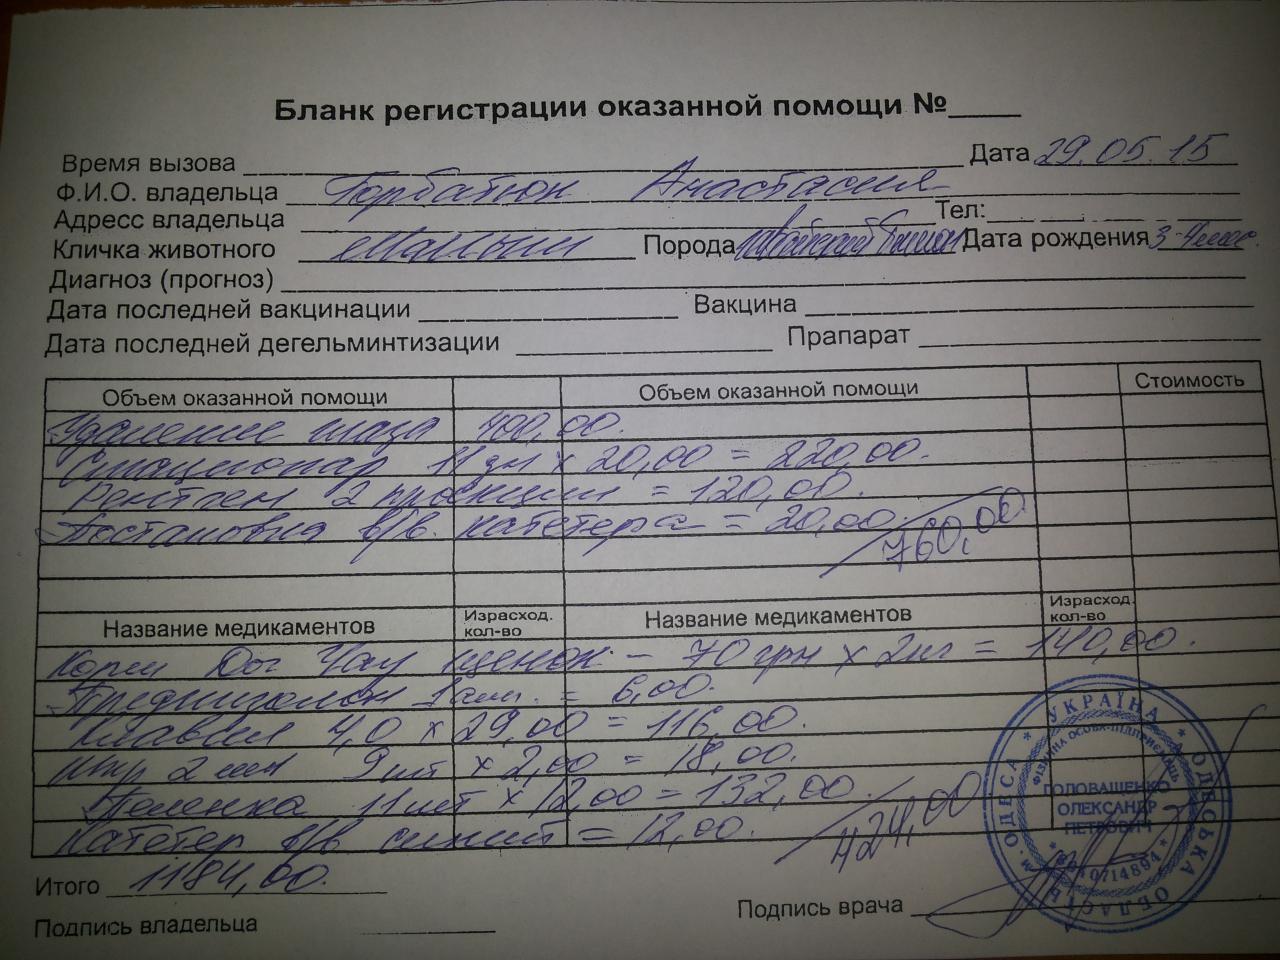 Бланк регистрации оказанной помощи №____
Время вызова ____ Дата 29.05.15
Ф.И.О. владельца Горбатюк Анастасия
Адресс владельца ____ Тел: ____
Кличка животного Порода Дата рождения 3-4 мес.
Диагноз (прогноз) ____
Дата последней вакцинации ____ Вакцина ____
Дата последней дегельминтизации ____ Прапарат ____
Объем оказанной помощи Объем оказанной помощи Стоимость
Удаление глаза 400,00.
Стационар 11 дн х 20,00 = 220,00.
Рентген 2 проекции = 120,00.
Постановка в/в. катетера = 20,00.
760,00
Название медикаментов Израсход. кол-во Название медикаментов Израсход. кол-во
Корм Дог Чау щенок - 70 грн х 2кг = 140,00.
Преднизолон 1 амп. = 6,00.
4,0 х 29,00 = 116,00.
шпр 2 мл 9 шт х 2,00 = 18,00.
Пеленка 11 шт х 12,00 = 132,00.
Катетер в/в синий = 12,00.
424,00
Итого 1184,00.
Подпись владельца ____
Подпись врача ____
* УКРАЇНА * ОДЕСЬКА ОБЛАСТЬ * м. ОДЕСА
ФІЗИЧНА ОСОБА-ПІДПРИЄМЕЦЬ
ГОЛОВАЩЕНКО
ОЛЕКСАНДР
ПЕТРОВИЧ